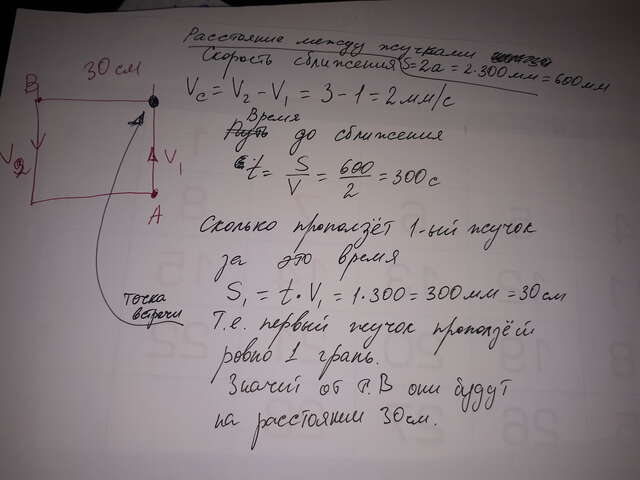 Расстояние между жучками
S = 2a = 2·300 мм = 600 мм
Скорость сближения
Vс = V2 - V1 = 3 - 1 = 2 мм/с
Время
Путь до сближения
t = S/V = 600/2 = 300 с
Сколько проползёт 1-ый жучок
за это время
S1 = t · V1 = 1·300 = 300 мм = 30 см
Т.е. первый жучок проползёт
ровно 1 грань.
Значит от т. В они будут
на расстоянии 30 см.
30 см
B
V2
V1
A
точка
встречи